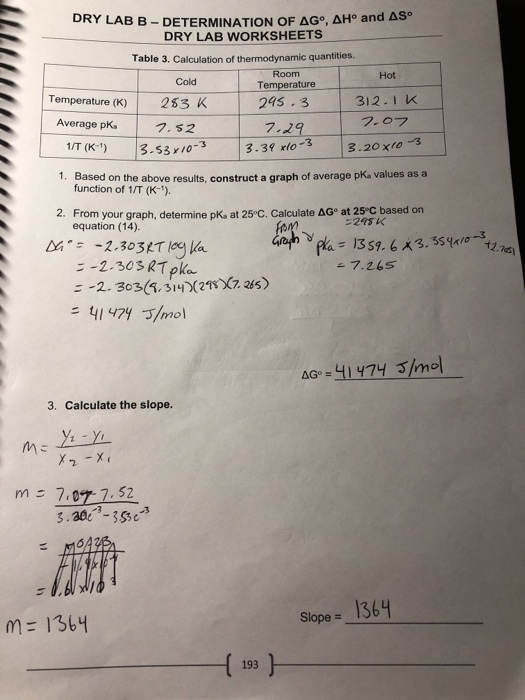 DRY LAB B – DETERMINATION OF ΔGº, ΔHº and ΔSº
DRY LAB WORKSHEETS
Table 3. Calculation of thermodynamic quantities.
Cold Room Temperature Hot
Temperature (K) 283 K 295.3 312.1 K
Average pKa 7.52 7.29 7.07
1/T (K⁻¹) 3.53x10⁻³ 3.39 x10⁻³ 3.20x10⁻³
1. Based on the above results, construct a graph of average pKa values as a
function of 1/T (K⁻¹).
2. From your graph, determine pKa at 25ºC. Calculate ΔGº at 25ºC based on
equation (14).
=298K
From
Graph
ΔG° = -2.303RT log Ka
pka = 1359.6 x 3.354x10⁻³
= -2.303RTpka
= 7.265
= -2.303(8.314)(298)(7.265)
= 41474 J/mol
ΔGº = 41474 J/mol
3. Calculate the slope.
m = y₂-y₁
x₂-x₁
m = 7.07-7.52
3.20e⁻³-3.53e⁻³
=
=
m = 1364
Slope = 1364
193